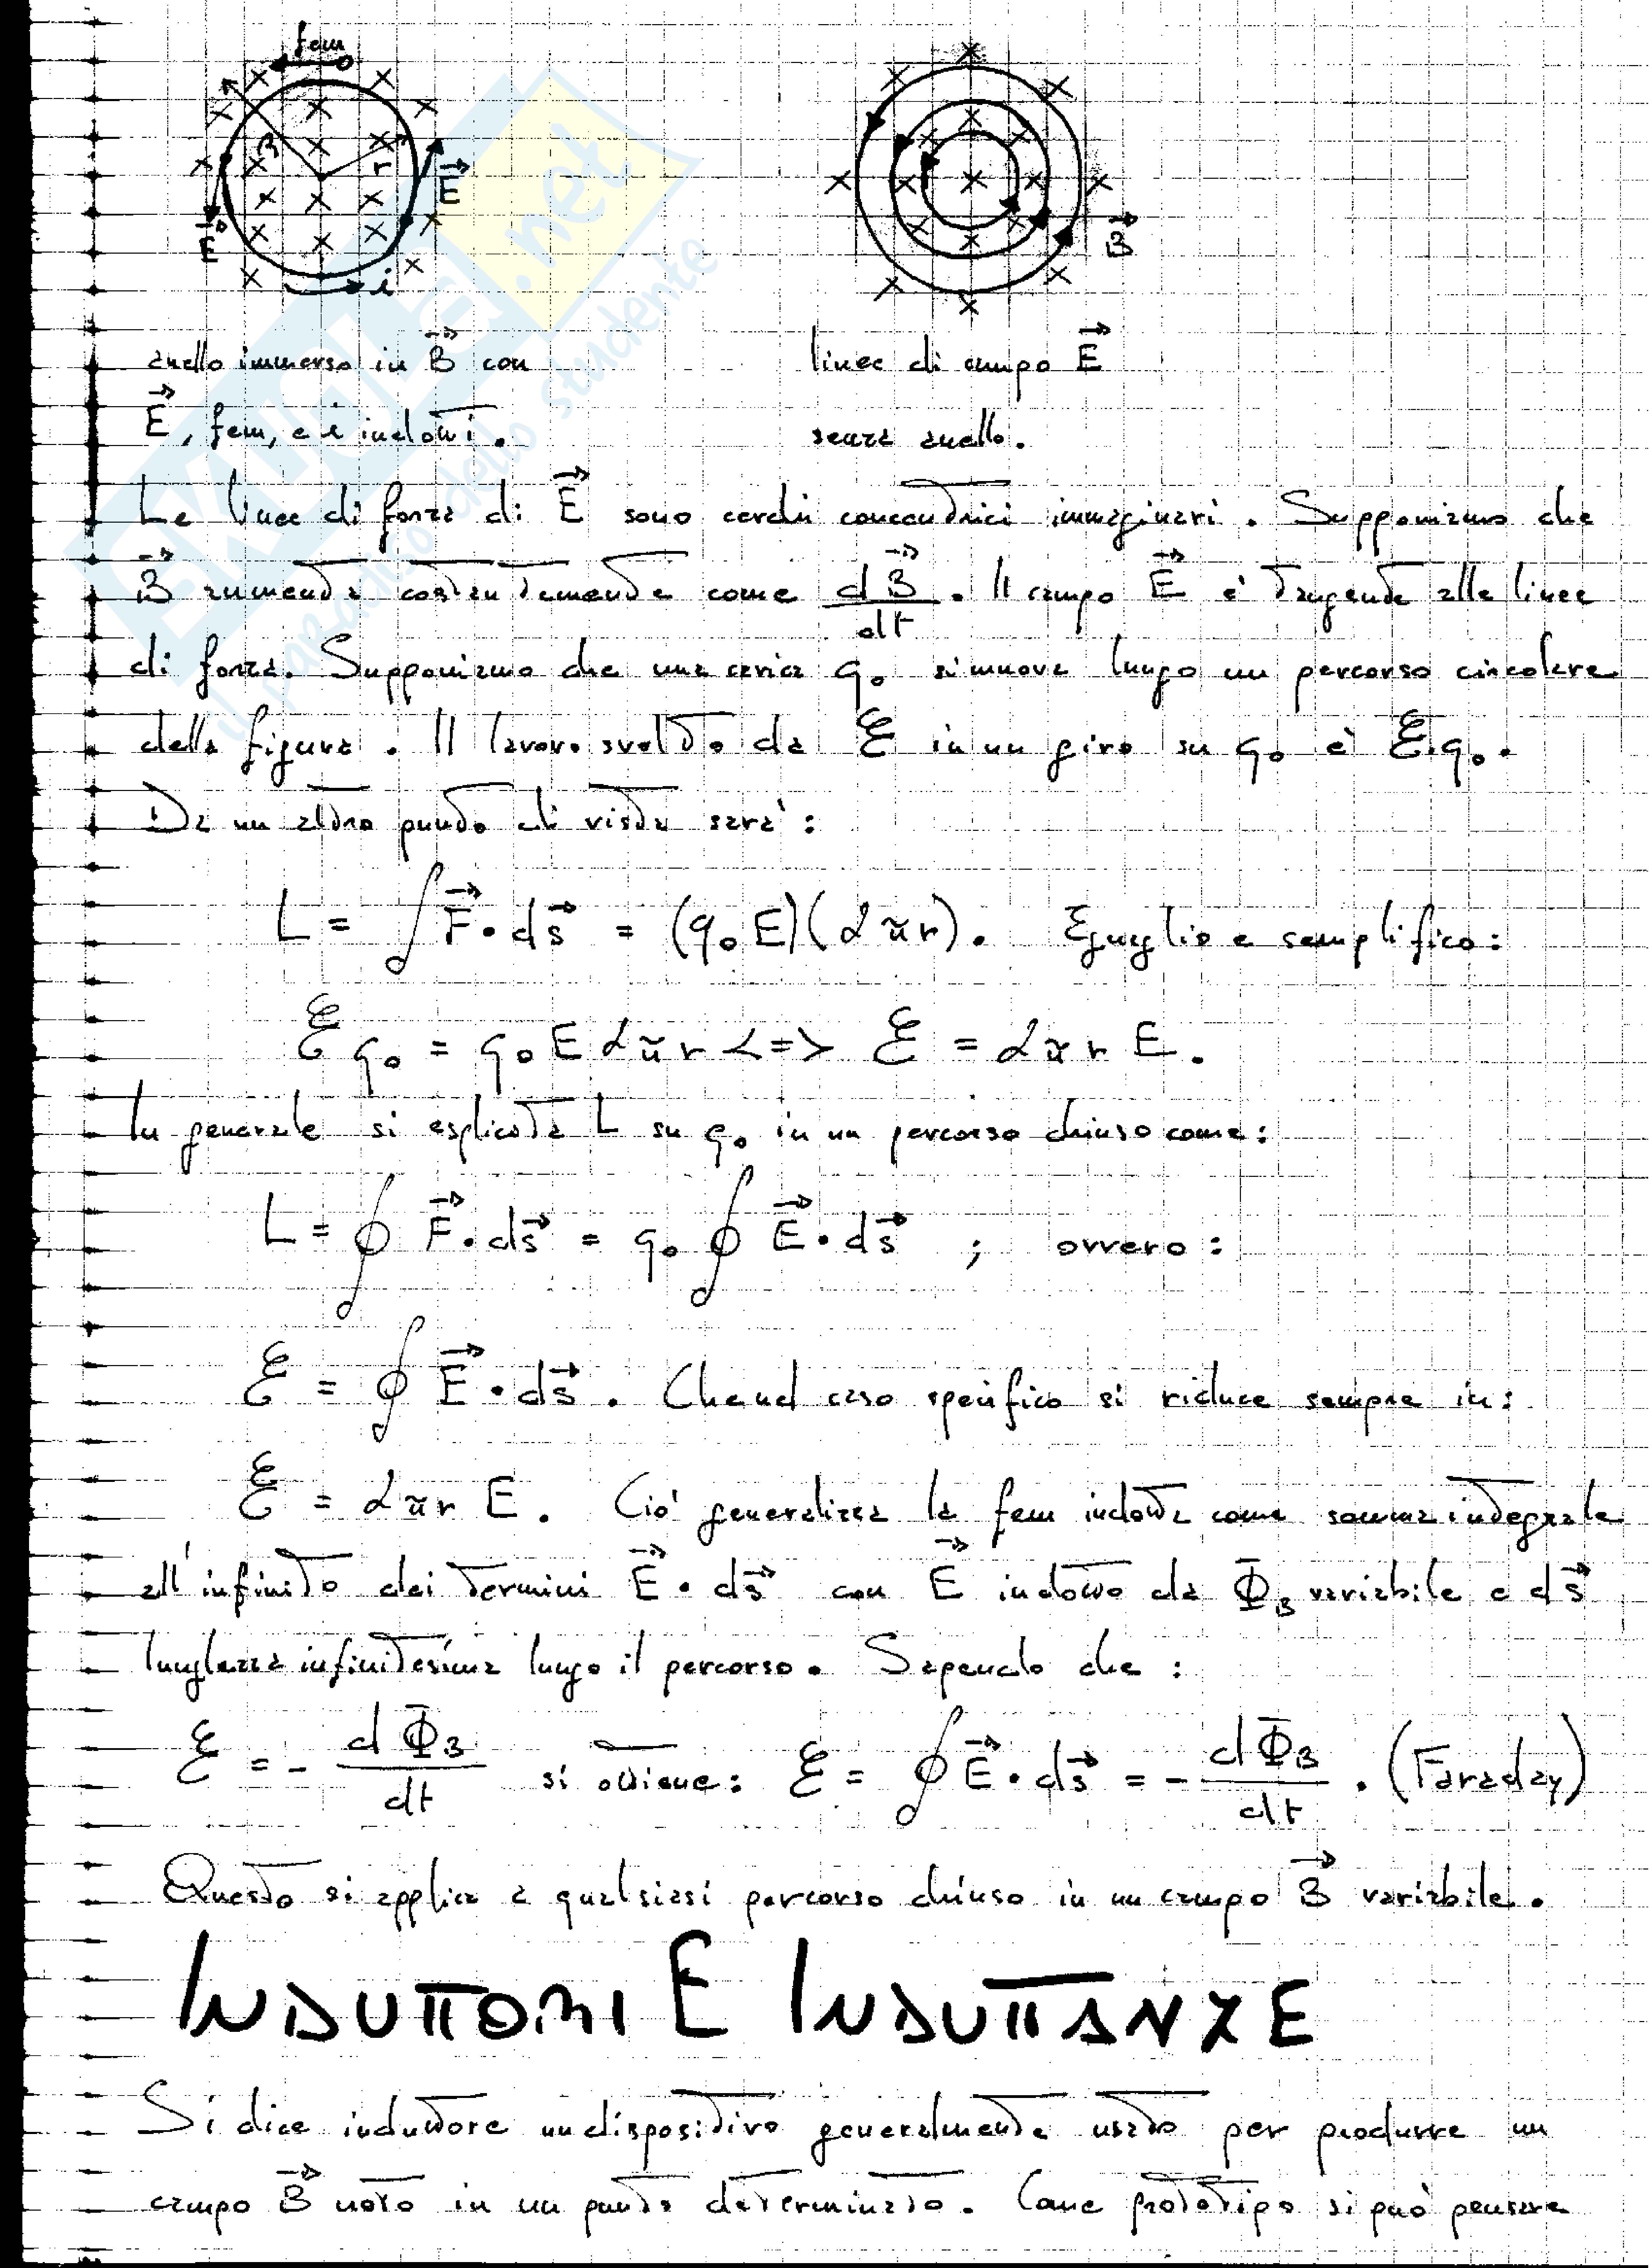 fem
R
r
E⃗
E⃗
i
B⃗
anello immerso in B⃗ con
E⃗, fem, e i indotti.
linee di campo E⃗
senza anello.
Le linee di forza di E⃗ sono cerchi concentrici immaginari. Supponiamo che
B⃗ aumenta costantemente come dB⃗/dt. Il campo E⃗ è tangente alle linee
di forza. Supponiamo che una carica q₀ si muova lungo un percorso circolare
della figura. Il lavoro svolto da ℰ in un giro su q₀ è ℰ·q₀.
Da un altro punto di vista sarà:
L = ∮ F⃗·ds⃗ = (q₀E)(2πr). Eguaglio e semplifico:
ℰq₀ = q₀E2πr <=> ℰ = 2πrE.
In generale si esplicita L su q₀ in un percorso chiuso come:
L = ∮ F⃗·ds⃗ = q₀ ∮ E⃗·ds⃗ ; ovvero:
ℰ = ∮ E⃗·ds⃗. Che nel caso specifico si riduce sempre in:
ℰ = 2πr E. Ciò generalizza la fem indotta come somma integrale
all'infinito dei termini E⃗·ds⃗ con E⃗ indotto da Φ_B variabile e ds⃗
lunghezza infinitesima lungo il percorso. Sapendo che:
ℰ = - dΦ_B/dt si ottiene: ℰ = ∮ E⃗·ds⃗ = - dΦ_B/dt. (Faraday)
Questo si applica a qualsiasi percorso chiuso in un campo B⃗ variabile.
INDUTTORI E INDUTTANZE
Si dice induttore un dispositivo generalmente usato per produrre un
campo B⃗ noto in un punto determinato. Come prototipo si può pensare